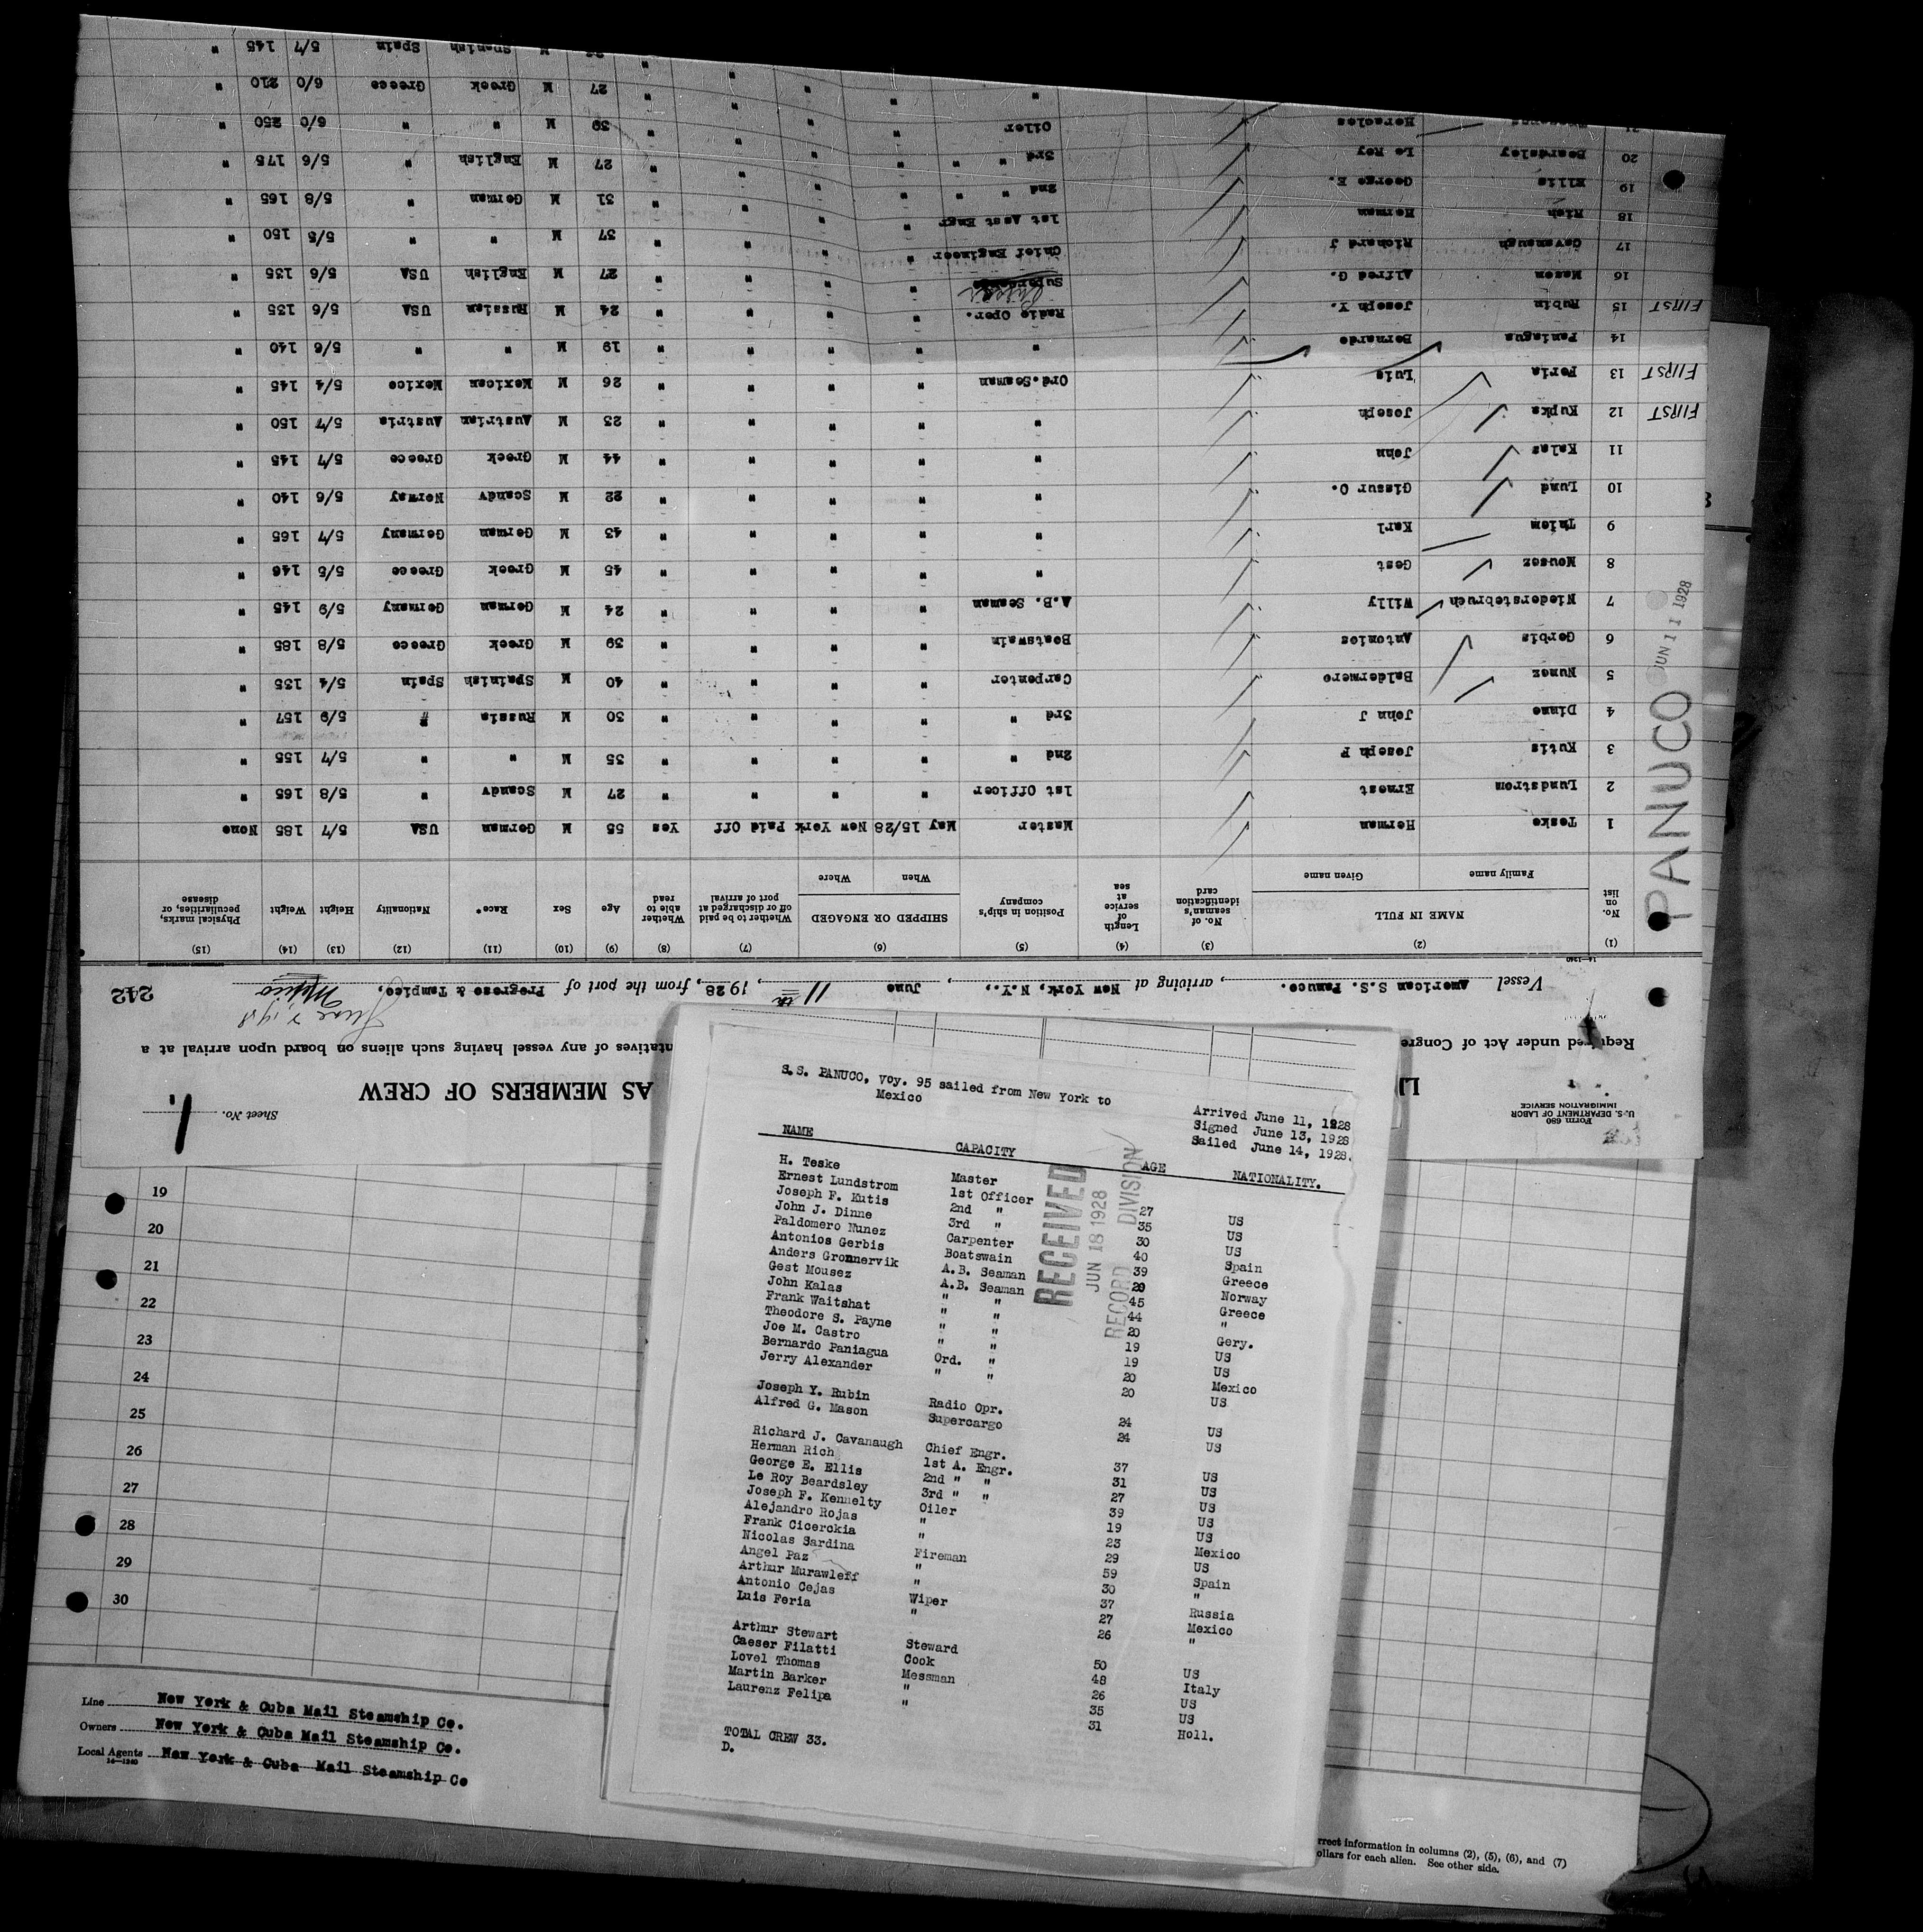 Form 680
U.S. DEPARTMENT OF LABOR
IMMIGRATION SERVICE
Sheet No. 1
AS MEMBERS OF CREW
Required under Act of Congre
ntatives of any vessel having such aliens on board upon arrival at a
Vessel American S.S. Panuco., arriving at New York, N.Y., June 11th, 1928, from the port of Progreso & Tampico, Mexico
June 2, 1928
242
14—1240
(1) (2) (3) (4) (5) (6) (7) (8) (9) (10) (11) (12) (13) (14) (15)
No. on list NAME IN FULL No. of seaman's identification card Length of service at sea Position in ship's company SHIPPED OR ENGAGED Whether to be paid off or discharged at port of arrival Whether able to read Age Sex Race* Nationality Height Weight Physical marks, peculiarities, or disease
Family name Given name When Where
1 Teske Herman Master May 15/28 New York Paid Off Yes 55 M German USA 5/7 185 None
2 Lundstrom Ernest 1st Officer " " " " 27 M Scandv " 5/8 165 "
3 Kutis Joseph F 2nd " " " " " 35 M " " 5/7 155 "
4 Dinne John J 3rd " " " " " 30 M Russia " 5/9 157 "
5 Nunez Baldermero Carpenter " " " " 40 M Spainish Spain 5/4 135 "
6 Gerbis Antonios Boatswain " " " " 39 M Greek Greece 5/8 185 "
7 Niederstebruch Willy A.B. Seaman " " " " 24 M German Germany 5/9 145 "
8 Mousez Gest " " " " " 45 M Greek Greece 5/5 146 "
9 Thiem Karl " " " " " 43 M German Germany 5/7 165 "
10 Lund Gissur O. " " " " " 22 M Scandv Norway 5/6 140 "
11 Kalas John " " " " " 44 M Greek Greece 5/7 145 "
FIRST 12 Kupka Joseph " " " " " 23 M Austrian Austria 5/7 150 "
FIRST 13 Feria Luis Ord.Seaman " " " " 26 M Mexican Mexico 5/4 145 "
14 Paniagua Bernardo " " " " " 19 M " " 5/6 140 "
FIRST 15 Rubin Joseph Y. Radio Oper. " " " " 24 M Russian USA 5/6 135 "
16 Mason Alfred G. " " " " 27 M English USA 5/6 135 "
17 Cavanaugh Richard J Chief Engineer " " " " 37 M " " 5/5 150 "
18 Rich Herman 1st Asst Engr " " " " 31 M German " 5/8 165 "
19 Ellis George E. 2nd " " " " " " 27 M English " 5/6 175 "
20 Beardsley Le Roy 3rd " " " " " " 39 M " " 6/0 250 "
21 Heracles Oiler " " " " 27 M Greek Greece 6/0 210 "
" " " " " M Spanish Spain 5/7 145 "
PANUCO
JUN 11 1928
S.S. PANUCO, Voy. 95 sailed from New York to
Mexico
Arrived June 11, 1928
Signed June 13, 1928
Sailed June 14, 1928.
NAME CAPACITY AGE NATIONALITY.
H. Teske Master
Ernest Lundstrom 1st Officer 27 US
Joseph F. Kutis 2nd " 35 US
John J. Dinne 3rd " 30 US
Paldomero Nunez Carpenter 40 Spain
Antonios Gerbis Boatswain 39 Greece
Anders Gronnervik A.B. Seaman 20 Norway
Gest Mousez A.B. Seaman 45 Greece
John Kalas " " 44 "
Frank Waitshat " " 20 Gery.
Theodore S. Payne " " 19 US
Joe M. Castro " " 19 US
Bernardo Paniagua Ord. " 20 Mexico
Jerry Alexander " " 20 US
Joseph Y. Rubin Radio Opr. 24 US
Alfred G. Mason Supercargo 24 US
Richard J. Cavanaugh Chief Engr. 37 US
Herman Rich 1st A. Engr. 31 US
George E. Ellis 2nd " " 27 US
Le Roy Beardsley 3rd " " 39 US
Joseph F. Kennelty Oiler 19 US
Alejandro Rojas " 23 Mexico
Frank Cicerckia " 29 US
Nicolas Sardina Fireman 59 Spain
Angel Paz " 30 "
Arthur Murawleff " 37 Russia
Antonio Cejas Wiper 27 Mexico
Luis Feria " 26 "
Arthur Stewart Steward 50 US
Caeser Filatti Cook 48 Italy
Lovel Thomas Messman 26 US
Martin Barker " 35 US
Laurenz Felipa " 31 Holl.
TOTAL CREW 33.
D.
RECEIVED
JUN 18 1928
RECORD DIVISION
19
20
21
22
23
24
25
26
27
28
29
30
Line New York & Cuba Mail Steamship Co.
Owners New York & Cuba Mail Steamship Co.
Local Agents New York & Cuba Mail Steamship Co
14—1240
rrect information in columns (2), (5), (6), and (7)
ollars for each alien. See other side.